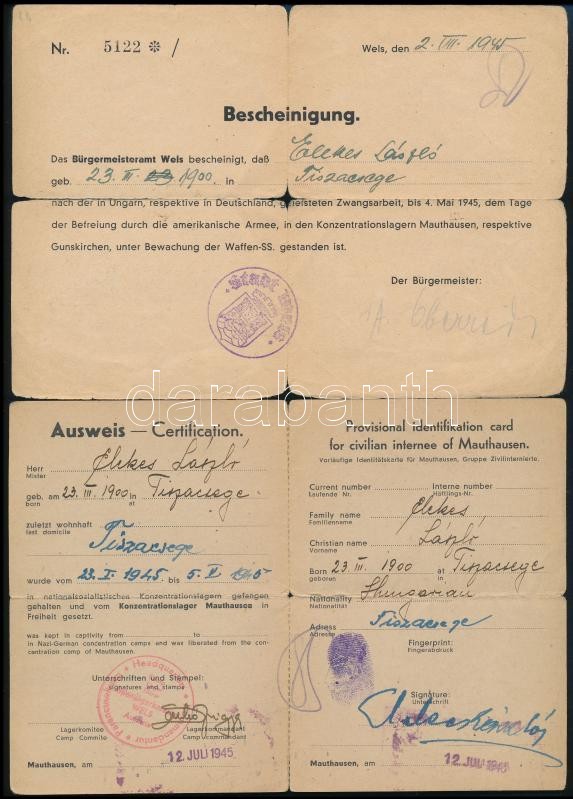 Nr. 5122 * /
Wels, den 2. VII. 1945
Bescheinigung.
Das Bürgermeisteramt Wels bescheinigt, daß Elekes László
geb. 23. III. 1900. in Tiszacsege
nach der in Ungarn, respektive in Deutschland, geleisteten Zwangsarbeit, bis 4. Mai 1945, dem Tage
der Befreiung durch die amerikanische Armee, in den Konzentrationslagern Mauthausen, respektive
Gunskirchen, unter Bewachung der Waffen-SS. gestanden ist.
Der Bürgermeister:
darabanth.com
Ausweis — Certification.
Herr Elekes László
Mister
geb. am 23. III. 1900 in Tiszacsege.
born at
zuletzt wohnhaft
last domicile
Tiszacsege
wurde vom 23. I. 1945. bis 5. V. 1945
in nationalsozialistischen Konzentrationslagern gefangen
gehalten und vom Konzentrationslager Mauthausen in
Freiheit gesetzt.
was kept in captivity from to
in Nazi-German concentration camps and was liberated from the con-
centration comp of Mauthausen.
Unterschriften und Stempel:
signatures and stamps
Lagerkomitee Lagerkommandant
Camp Commite Camp commandant
12. JULI 1945
Mauthausen, am
Provisional identifikation card
for civilian internee of Mauthausen.
Vorläufige Identitätskarte für Mauthausen, Gruppe Zivilinternierte.
Current number Interne number
Laufende Nr. Häftlings-Nr.
Family name Elekes
Familienname
Christian name László
Vorname
Born 23. III. 1900 at Tiszacsege
geboren in
Nationality Hungarian
Nationalität
Adress Tiszacsege
Adresse
Fingerprint:
Fingerabdruck
Signature:
Unterschrift
12. JULI 1945
Mauthausen, am